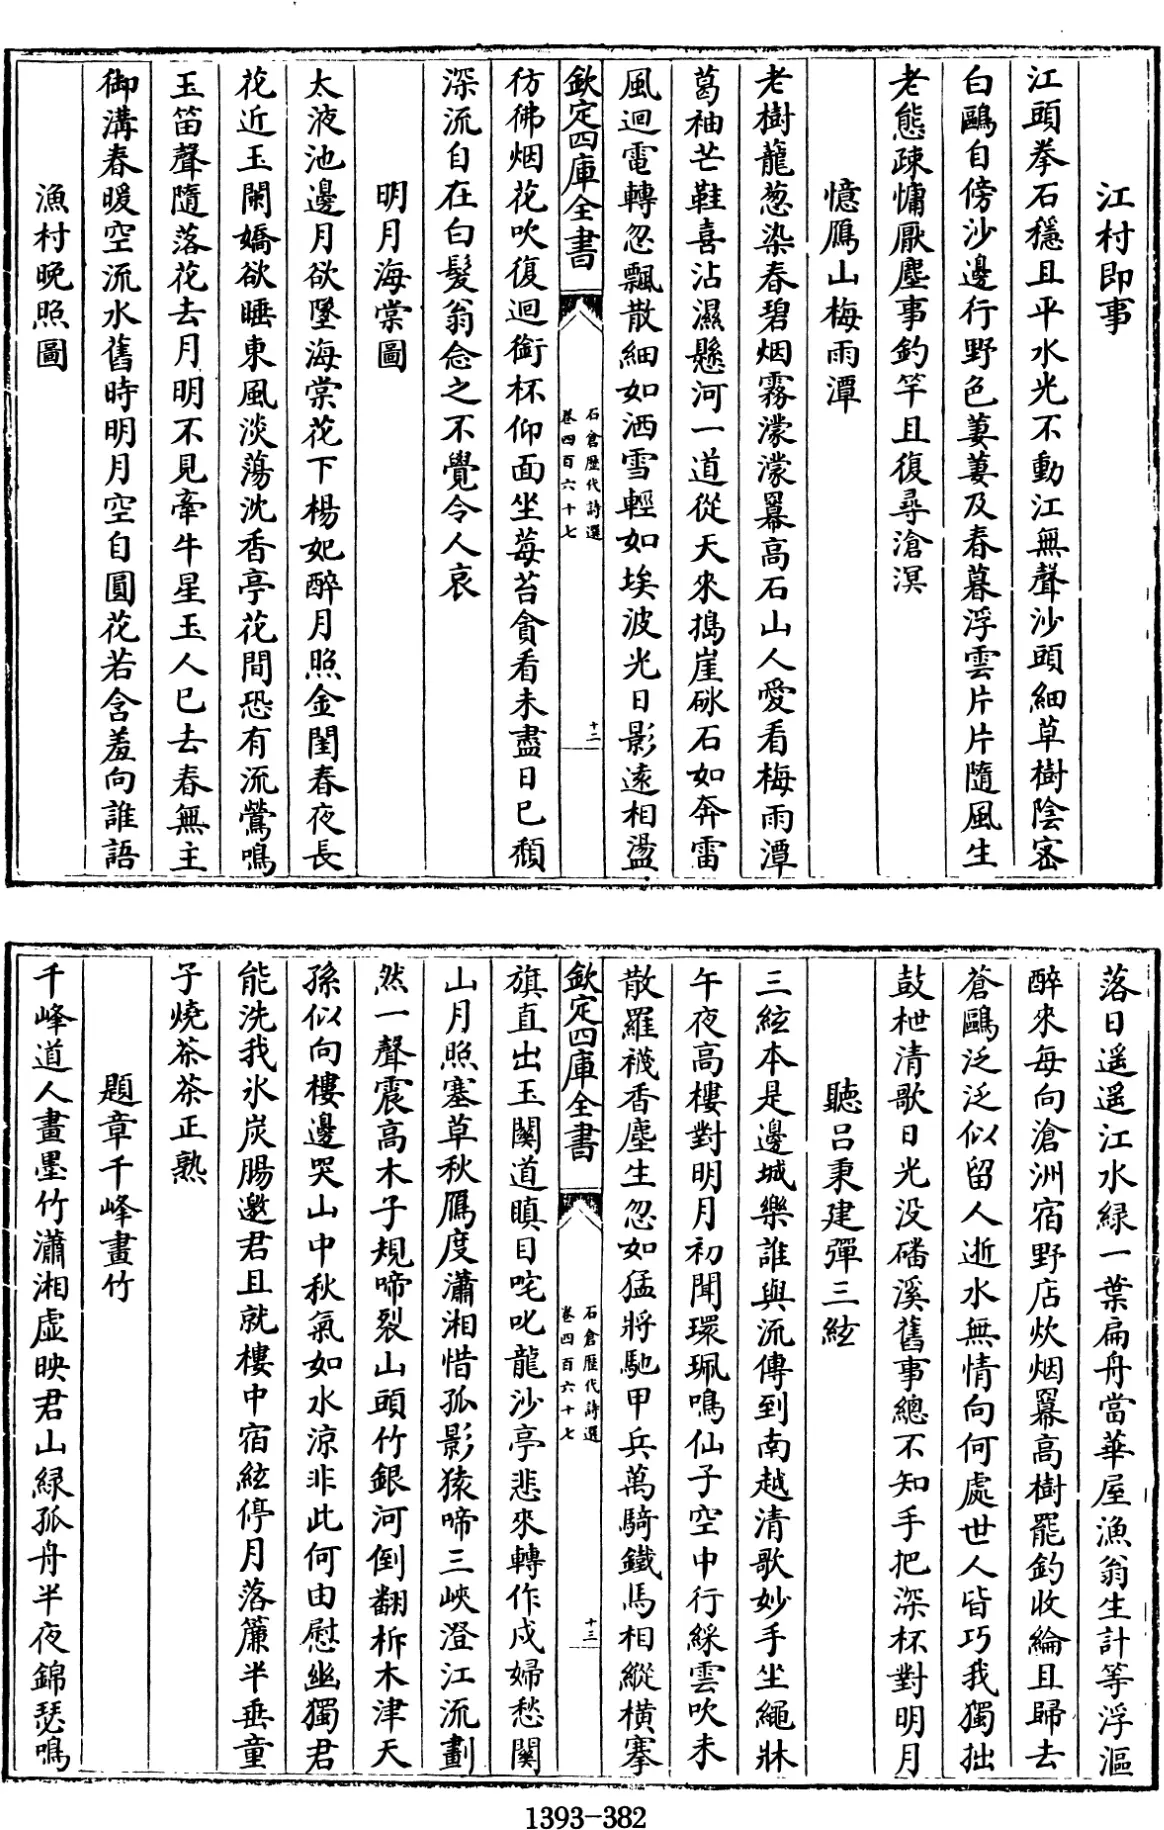 江村即事
江頭拳石穩且平水光不動江無聲沙頭細草樹陰密
白鷗自傍沙邊行野色萋萋及春暮浮雲片片隨風生
老態疎慵厭塵事釣竿且復尋滄溟
憶鴈山梅雨潭
老樹龍葱染春碧烟霧濛濛羃高石山人愛看梅雨潭
葛袖芒鞋喜沾濕懸河一道從天來搗崖砅石如奔雷
風迴電轉忽飄散細如洒雪輕如埃波光日影遠相盪
欽定四庫全書
石倉歷代詩選
卷四百六十七
十二
彷彿烟花吹復迴銜杯仰面坐莓苔貪看未盡日已頹
深流自在白髮翁念之不覺令人哀
明月海棠圖
太液池邊月欲墜海棠花下楊妃醉月照金閨春夜長
花近玉闌嬌欲睡東風淡蕩沈香亭花間恐有流鶯鳴
玉笛聲隨落花去月明不見牽牛星玉人已去春無主
御溝春暖空流水舊時明月空自圓花若含羞向誰語
漁村晚照圖
落日遥遥江水緑一葉扁舟當華屋漁翁生計等浮漚
醉來每向滄洲宿野店炊烟羃高樹罷釣收綸且歸去
蒼鷗泛泛似留人逝水無情向何處世人皆巧我獨拙
鼓枻清歌日光没磻溪舊事總不知手把深杯對明月
聽吕秉建彈三絃
三絃本是邊城樂誰與流傳到南越清歌妙手坐繩牀
午夜高樓對明月初聞環珮鳴仙子空中行綵雲吹未
散羅襪香塵生忽如猛將馳甲兵萬騎鐵馬相縱橫搴
欽定四庫全書
石倉歷代詩選
卷四百六十七
十三
旗直出玉關道瞋目咤叱龍沙亭悲來轉作戍婦愁關
山月照塞草秋鴈度瀟湘惜孤影猿啼三峽澄江流劃
然一聲震高木子規啼裂山頭竹銀河倒翻析木津天
孫似向樓邊哭山中秋氣如水涼非此何由慰幽獨君
能洗我氷炭腸邀君且就樓中宿絃停月落簾半垂童
子燒茶茶正熟
題章千峰畫竹
千峰道人畫墨竹瀟湘虚映君山緑孤舟半夜錦瑟鳴
1393-382